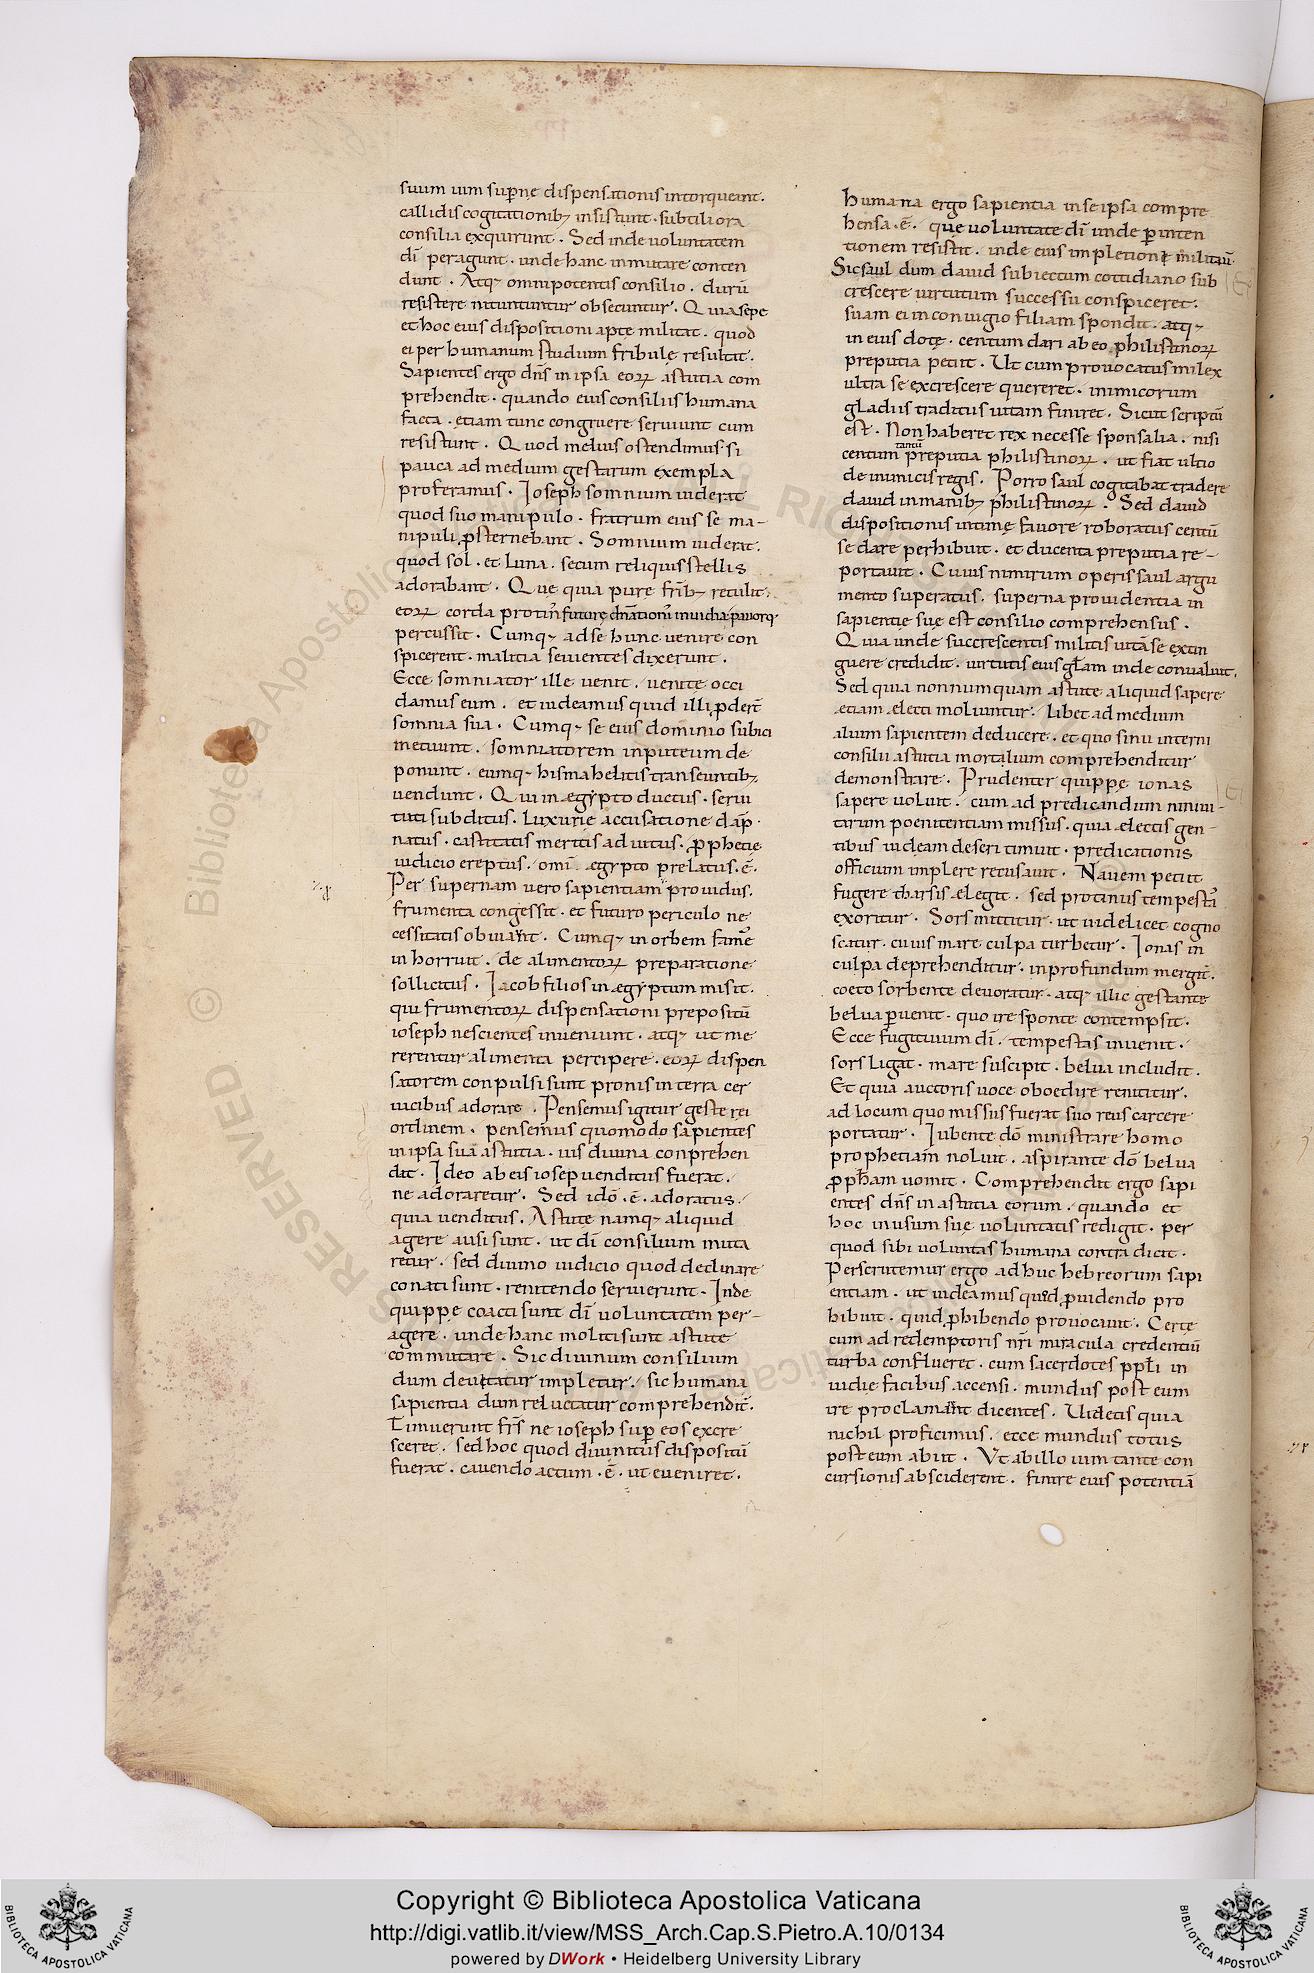 suum uim sup̄nę dispensationis intorqueant.
callidis cogitationib; insistunt. subtiliora
consilia exquirunt. Sed inde uoluntatem
dī peragunt. unde hanc inmutare conten
dunt. Atq; omnipotentis consilio. durū
resistere nituntur obsecuntur. Quia sepe
et hoc eius dispositioni apte militat. quod
ei per humanum studium fribule resultat.
Sapientes ergo dn̄s in ipsa eoꝝ astutia com
prehendit. quando eius consiliis humana
facta. etiam tunc congruere seruiunt cum
resistunt. Quod melius ostendimus si
pauca ad medium gestarum exempla
proferamus. Ioseph somnium uiderat
quod suo manipulo. fratrum eius se ma-
nipuli ꝓsternebant. Somnium uiderat.
quod sol. et luna. secum reliquis stellis
adorabant. Que quia pure frīb; retulit.
eoꝝ corda protin' futurę dn̄ationis inuidia pauorq;
percussit. Cumq; ad se hunc uenire con
spicerent. malitia seuientes dixerunt.
Ecce somniator ille uenit. uenite occi
damus eum. et uideamus quid illi ꝓdert̄
somnia sua. Cumq; se eius dominio subici
metiunt. somniatorem in puteum de
ponunt. eumq; hismahelitis transeuntib;
uendunt. Qui in ægypto ductus. serui
tuti subditus. luxurie accusatione dāp
natus. castitatis meritis adiutus. ꝓphetię
iudicio ereptus. omī ægypto prelatus. ē.
Per supernam uero sapientiam prouidus.
frumenta congessit. et futuro periculo ne
cessitatis obuiauit. Cumq; in orbem fames
inhorruit. de alimentoꝝ preparatione
sollicitus. Iacob filios in ægyptum misit.
qui frumentoꝝ dispensationi prepositū
ioseph nescientes inueniunt. atq; ut me
rerentur alimenta percipere. eoꝝ dispen
satorem conpulsi sunt pronis in terra cer
uicibus adorare. Pensemus igitur geste rei
ordinem. pensemus quomodo sapientes
in ipsa suā astutia. uis diuina conprehen
dat. Ideo ab eis iosep uenditus fuerat.
ne adoraretur. Sed idō. ē. adoratus.
quia uenditus. Astute namq; aliquid
agere ausi sunt. ut dī consilium muta
retur. sed diuino iudicio quod declinare
conati sunt. renitendo seruierunt. Inde
quippe coacti sunt dī uoluntatem per-
agere. unde hanc moliti sunt astute
commutare. Sic diuinum consilium
dum deuitatur impletur. sic humana
sapientia dum reluctatur comprehendit̄.
Timuerunt frs̄ ne ioseph sup̄ eos excre
sceret. sed hoc quod diuinitus dispositū
fuerat. cauendo actum. ē. ut eueniret.
humana ergo sapientia in se ipsa compre
hensa. ē. quę uoluntate dī unde p̄ inten
tionem resistit. inde eius impletionē militauit.
Sic saul dum dauid subiectum cottidiano sub
crescere uirtutum successu conspiceret.
suam ei in coniugio filiam spondit. atq;
in eius dotę. centum dari ab eo philistinoꝝ
preputia petiit. Ut cum prouocatus milex
ultra se excrescere quereret. inimicorum
gladiis traditus uitam finiret. Sicut scriptū
est. Non haberet rex necesse sponsalia. nisi
tantū
centum preputia philistinoꝝ. ut fiat ultio
de inimicis regis. Porro saul cogitabat tradere
dauid in manib; philistinoꝝ. Sed dauid
dispositionis intimę fauore roboratus centū
se dare perhibuit. et ducenta preputia re-
portauit. Cuius nimirum operis saul argu
mento superatus. superna prouidentia in
sapientie sue est consilio comprehensus.
Quia unde succrescentis militis uitā se extin
guere credidit. uirtutis eius gl̄am inde conualuit.
Sed quia nonnumquam astute aliquid sapere
etiam electi moliuntur. libet ad medium
alium sapientem deducere. et quo sinu interni
consilii astutia mortalium comprehenditur
demonstrare. Prudenter quippe ionas
sapere uoluit. cum ad predicandum niniui-
tarum poenitentiam missus. quia electis gen-
tibus iudeam deseri timuit. predicationis
officium implere recusauit. Nauem petiit
fugere tharsis elegit. sed protinus tempestas
exoritur. Sors mittitur. ut uidelicet cogno
scatur. cuius mare culpa turbetur. Ionas in
culpa deprehenditur. in profundum mergit̄.
coeto sorbente deuoratur. atq; illic gestante
belua p̄uenit. quo ire sponte contempsit.
Ecce fugitiuum dī. tempestas inuenit.
sors ligat. mare suscipit. belua includit.
Et quia auctoris uoce oboedire renititur.
ad locum quo missus fuerat suo reus carcere
portatur. Iubente dō ministrare homo
prophetiam noluit. aspirante dō belua
ꝓpham uomit. Comprehendit ergo sapi
entes dn̄s in astutia eorum. quando et
hoc in usum suę uoluntatis redigit. per
quod sibi uoluntas humana contradicit.
Perscrutemur ergo adhuc hebreorum sapi
entiam. ut uideamus quid ꝓuidendo pro
hibuit. quid ꝓhibendo prouocauit. Certe
cum ad redemptoris nr̄i miracula credentiū
turba conflueret. cum sacerdotes ppl̄i in
uidie facibus accensi. mundus post eum
ire proclamant dicentes. Uidetis quia
nichil proficimus. ecce mundus totus
post eum abiit. Ut ab illo uim tante con
cursionis absciderent. finire eius potentiā
© Biblioteca Apostolica Vaticana ALL RIGHTS RESERVED
Copyright © Biblioteca Apostolica Vaticana
http://digi.vatlib.it/view/MSS_Arch.Cap.S.Pietro.A.10/0134
powered by DWork • Heidelberg University Library
BIBLIOTECA APOSTOLICA VATICANA
BIBLIOTECA APOSTOLICA VATICANA